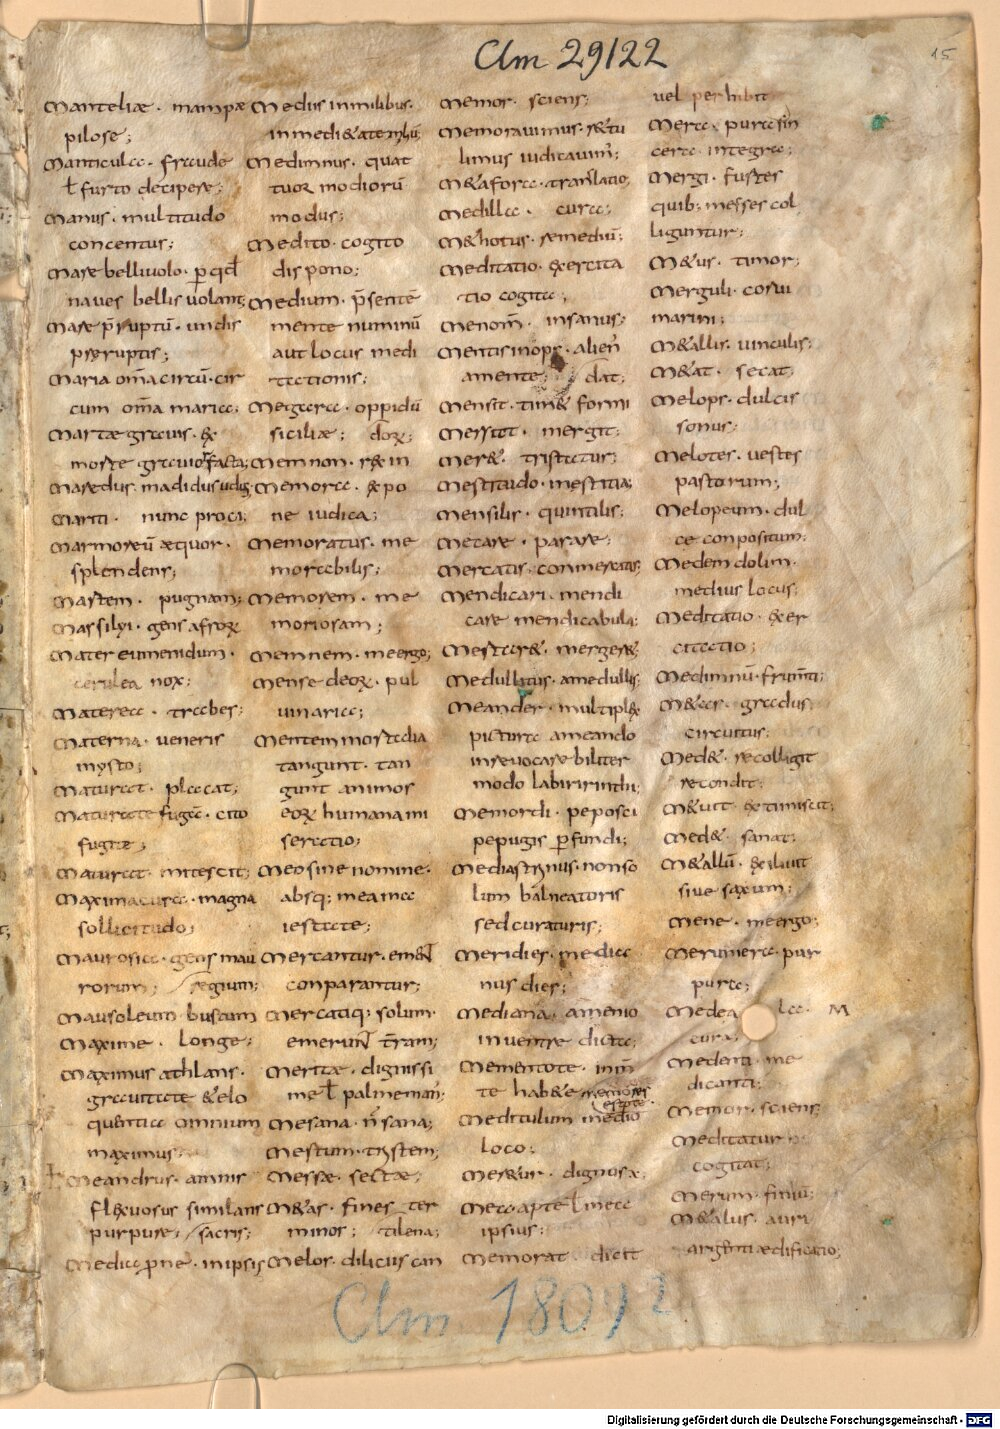 Clm 29122
15
Manteliæ · mampæ
pilose;
Manticulaa · fraude
ł furto decipere;
Manus · multitudo
concentus;
Mare bellivolo · ꝑ qđ
naves bellis uolant;
Mare p̄ruptū · undis
preruptis;
Maria om̄a circū · cir
cum om̄a maria;
Martæ gravis · &
morte
Maredus · madidus udus
Marti · nunc proci;
Marmoreū æquor ·
splendens;
Martem · pugnam;
Massilyi · gens afroꝝ
Mater eumenidum ·
cerulea nox;
Materea · trabes;
Materna · veneris
mysto;
Maturat · placat;
Maturate fugā · cito
fugite;
Maturat · mitescit;
Maxima cura · magna
sollicitudo;
Maurosica · gens mau
rorum; regium;
Mausoleum · bustum
Maxime · longe;
Maximus athlans ·
gravitate & elo
quentia omnium
maximus;
Meandrus · amnis
flexuosus similans
purpure; sacris;
Medica ꝑne · in ipsis
Medus in milibus ·
Medimnus · quat
tuoꝝ modiorū
modus;
Medito · cogito
dispono;
Medium · p̄sente
mente numinū
aut locus medi
tationis;
Megara · oppidū
siciliæ; doꝝ;
Memnon · rex in
Memora · expo
ne iudica;
Memoratus · me
morabilis;
Memorem · me
moriosam;
Memnem · me ergo;
Mense deoꝝ · pul
uinaria;
Mentem mortalia
tangunt · tan
gunt animos
eoꝝ humana mi
seratio;
Meo sine nomine ·
absq; mea ma
iestate;
Mercantur · em̄t
conparantur;
Mercatiq; solum ·
emerunt t̄ram;
Meritæ · dignissi
me ł palmeman;
Mesana · n̄ sana;
Mestum · tristem;
Messæ · sectæ;
M&as · fines ter
minos; tilena;
Melor · dilicius can
Memor · sciens;
Memoravimus · r&tu
limus iudicavim;
M&afora · translatio;
Medilla · cura;
M&hotus · remediū;
Meditatio · exercita
tio cogita;
Menom · insanus;
Mentis inops · alien
a mente; dat;
Mensit · tim& formi
Messat · mergit;
Mer& · tristatur;
Mestitudo · mestitia;
Mensilis · quintilis;
Metare · parare;
Mercatis · conmeratis;
Mendicari · mendi
care mendicabula;
Mestar& · merger&
Medullitus · a medullis;
Meander · multiplex
pictura ameando
inrevocare biliter
modo labiririnthi;
Memordi · peposci
pepugis ꝑfundi;
Mediastrinus · non so
lum balneatoris
sed curaturis;
Meridies · media
nus dies;
Mediana · amenio
in ventre dicta;
Mementote · in in̄
te habere memores
estote
Meditulum medio
loco;
Mer&ur · dignus &;
Metc apte ł meta
ipsius;
Memorat · dicit
vel perhibit
Mera · pura sin
cera integra;
Mergi · fustes
quib; messes col
liguntur;
M&us · timor;
Merguli · corui
marini;
M&allis · vinculis;
M&at · secat;
Melops · dulcis
sonus;
Melotes · vestes
pastorum;
Melopeum · dul
ce conpositum;
Medem dolim ·
medius locus;
Meditatio · exer
citatio;
Medimnū · frum̄ti;
M&as · gradus
circuitus;
Med& · recolligit
recondit;
M&uit · extimiscit;
Med& · sanat;
M&allū · exiluit
sive saxum;
Mene · me ergo;
Merumera · pur
pura;
Medea la · M
cura;
Medenti · me
dicanti;
Memor · sciens;
Meditatur ·
cogitat;
Merum · finiū;
M&alus · auri
argenti ædificatio;
Clm 18092
Digitalisierung gefördert durch die Deutsche Forschungsgemeinschaft - DFG